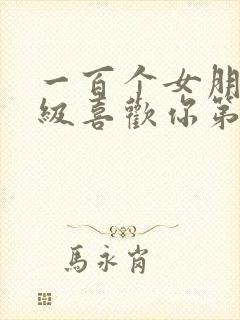 一百个女朋
級喜歡你第
馬永肖